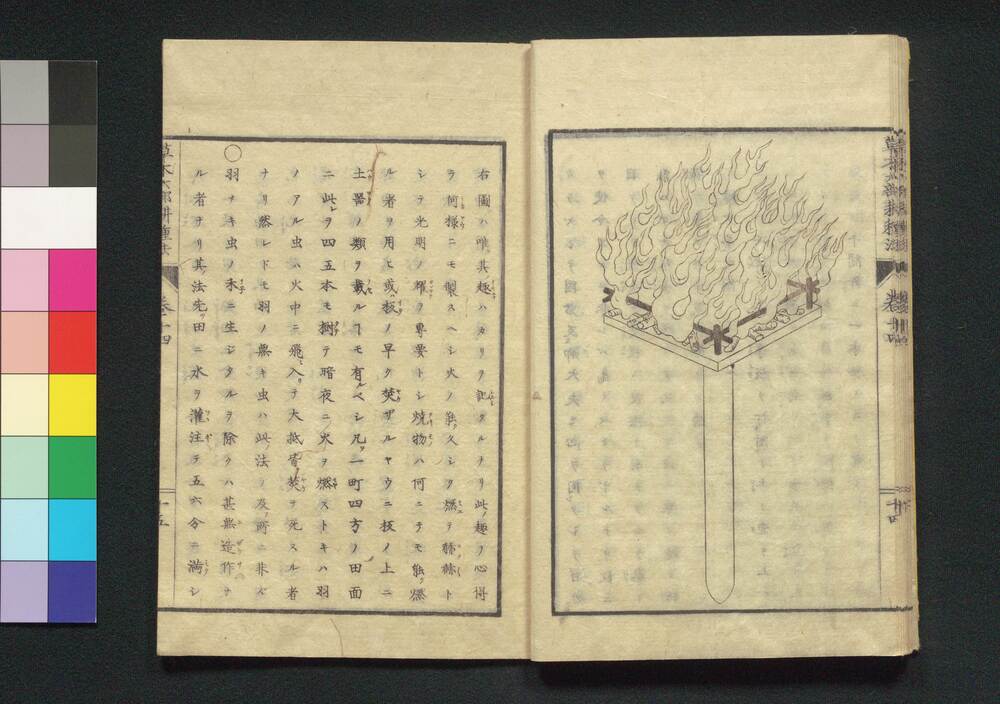 右圖ハ唯其趣ハカリヲ記タルナリ此ノ趣ヲ心得
ラ何様ニモ製スヘシ火ノ能久シク燃ヲ赫赫ト
シテ光明ノ耀ヲ專要トシ焼物ハ何ニテモ能ク燃
ル者ヲ用ヒ或板ノ早ク焚ザルヤウニ板ノ上ニ
土器ノ類ヲ載ルヿモ有ルベシ凡ソ一町四方ノ田面
ニ此ヲ四五本モ樹テ暗夜ニ火ヲ燃ストキハ羽
ノアル虫ハ火中ニ飛入テ大抵皆焚テ死スル者
ナリ然レドモ羽ノ無キ虫ハ此ノ法ノ及所ニ非ズ
○羽ナキ虫ノ禾ニ生シタルヲ除クハ甚無造作ナ
ル者ナリ其法先ツ田ニ水ヲ灌注テ五六分ニ満シ
草木六部耕種法
巻十四
十五